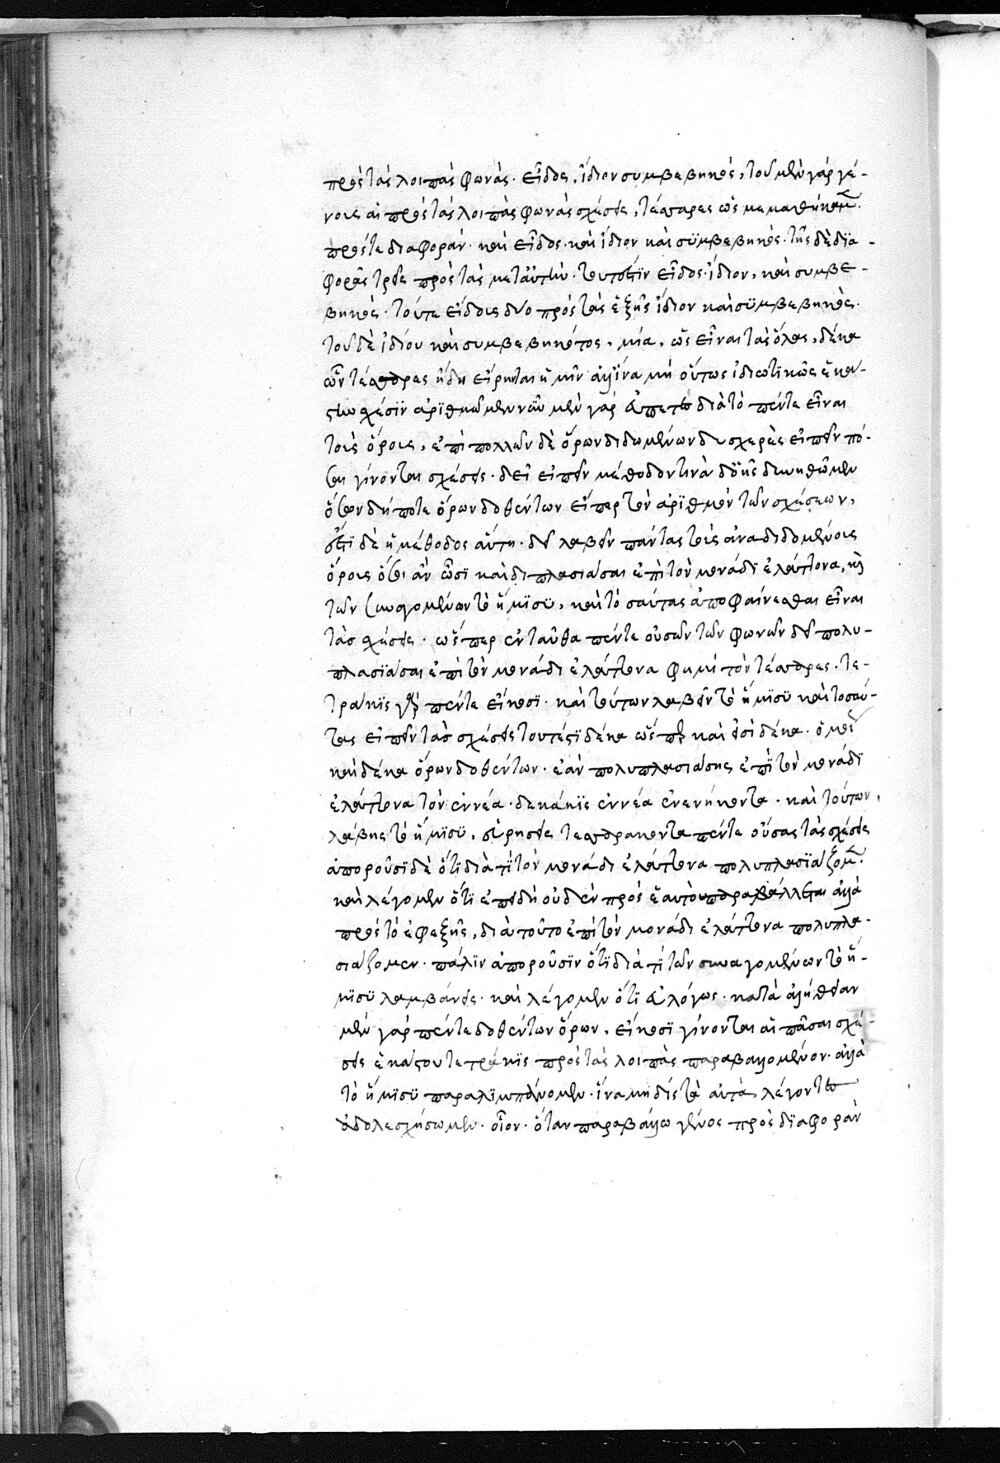 πρὸς τὰς λοιπὰς φωνὰς· εἶδος, ἴδιον συμβεβηκός, τοῦ μὲν γὰρ γέ-
νους αἱ πρὸς τὰς λοιπὰς φωνὰς σχέσεις, τέσσαρες ὡς μεμαθήκαμεν·
πρός τε διαφοράν· καὶ εἶδος· καὶ ἴδιον καὶ συμβεβηκός· τῆς δὲ δϊα-
φορᾶς τρεῖς πρὸς τὰς μετ' αὐτὴν· τουτέστιν εἶδος· ἴδιον, καὶ συμβε-
βηκὸς· τοῦ τε εἴδους δύο πρὸς τὰς ἑξῆς ἴδιον καὶ συμβεβηκὸς·
τοῦ δὲ ἰδίου καὶ συμβεβηκότος, μία, ὡς εἶναι τὰς ὅλας, δέκα
ὧν τέσσαρες ἤδη εἴρηται ἡμῖν ἀλλ' ἵνα μὴ οὕτως ἰδιωτικῶς ἑκά-
στην σχέσϊν ἀρϊθμῶμεν νῦν μὲν γὰρ διὰ τὸ πέντε εἶναι
τοὺς ὅρους, ἐπὶ πολλῶν δὲ ὅρων διδομένων δυσχερὲς εἰπεῖν πό-
σαι γίνονται σχέσεις· δεῖ εἰπεῖν μέθοδον τινὰ δι' ἧς δυνηθῶμεν
ὅσων δήποτε ὅρων δοθέντων εἰπεῖν τὸν ἀρϊθμὸν τῶν σχέσεων,
ἔστι δὲ ἡ μέθοδος αὕτη· δεῖ λαβεῖν πάντας τοὺς ἀναδιδομένους
ὅρους ὅσοι ἂν ὦσϊ καὶ διπλασιάσαι ἐπὶ τὸν μονάδϊ ἐλάττονα, καὶ
τῶν συναγομένων τὸ ἥμϊσϋ, καὶ τοσαύτας ἀποφαίνεσθαι εἶναι
τὰς σχέσεις· ὥσπερ ἐνταῦθα πέντε οὐσῶν τῶν φωνῶν δεῖ πολυ-
πλασϊάσαι ἐπὶ τὸν μονάδι ἐλάττονα φημὶ τὸν τέσσαρες· τε-
τράκϊς γὰρ πέντε εἴκοσϊ· καὶ τούτων λαβεῖν τὸ ἥμϊσϋ καὶ τοσαύ-
τας εἰπεῖν τὰς σχέσεις τουτέστϊ δέκα ὥσπερ καὶ εἰσὶ δέκα· ὁμοίως
καὶ δέκα ὅρων δοθέντων· ἐὰν πολυπλασιάσῃς ἐπὶ τὸν μονάδϊ
ἐλάττονα τὸν ἐννέα· δεκάκϊς ἐννέα ἐνενήκοντα· καὶ τούτων,
λάβῃς τὸ ἥμϊσϋ, εὑρήσεις τεσσαράκοντα πέντε οὔσας τὰς σχέσεις
ἀποροῦσϊ δὲ ὅτϊ διὰ τί τὸν μονάδι ἐλάττονα πολυπλασϊάζομεν·
καὶ λέγομεν ὅτϊ ἐπειδὴ οὐδὲν πρὸς ἑαυτὸ παραβάλλεται ἀλλὰ
πρὸς τὸ ἐφεξῆς, διὰ τοῦτο ἐπὶ τὸν μονάδι ἐλάττονα πολυπλα-
σιάζομεν· πάλϊν ἀποροῦσϊν ὅτϊ διὰ τί τῶν συναγομένων τὸ ἥ-
μϊσϋ λαμβάνεις· καὶ λέγομεν ὅτϊ εὐλόγως· κατὰ ἀλήθειαν
μὲν γὰρ πέντε δοθέντων ὅρων, εἴκοσϊ γίνονται αἱ πᾶσαι σχέ-
σεις ἑκάστου τετράκϊς πρὸς τὰς λοιπὰς παραβαλλομένου· ἀλλὰ
τὸ ἥμϊσϋ παραλϊμπάνομεν· ἵνα μὴ δὶς τὰ αὐτὰ λέγοντες
ἀδολεσχήσωμεν· οἷον· ὅταν παραβάλλω γένος πρὸς δϊαφοράν